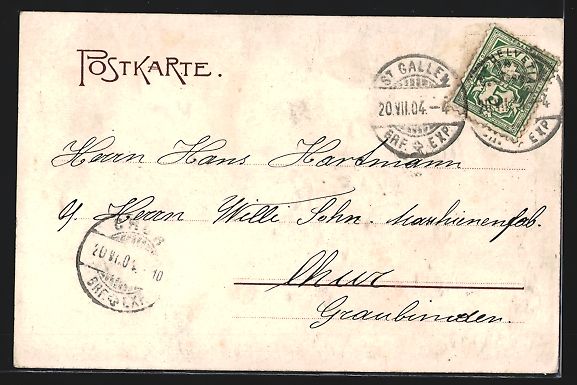 POSTKARTE.
ST GALLEN
20.VII.04.–4
BRF. EXP.
HELVETIA
5
EXP.
Herrn Hans Hartmann
c/ Herrn Willi Sohn. Maschienenfab.
CHUR
20.VII.04. 10
BRF. EXP.
Chur
Graubünden.